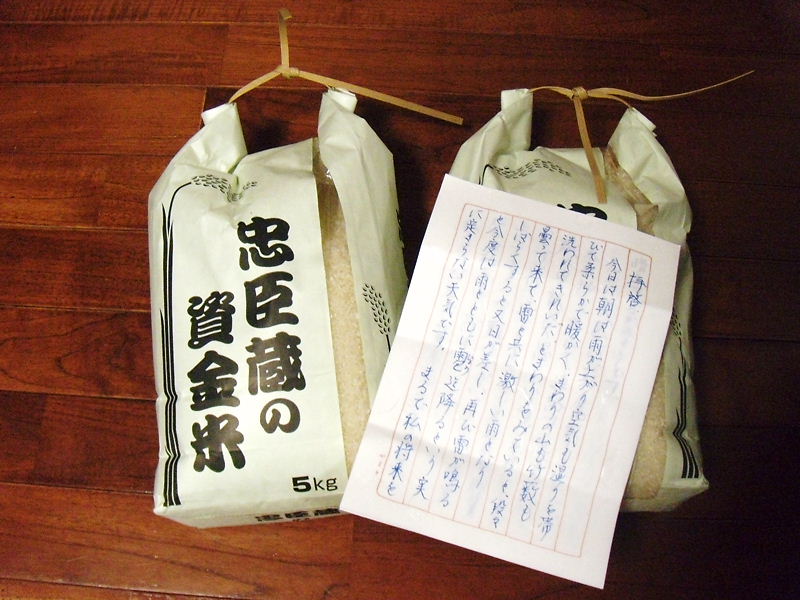 忠臣蔵の
資金米
5kg
忠臣蔵
拝啓
今日は朝は雨が上がり空気も湿りを帯
びて柔らかで暖かく、まわりの山も竹薮も
洗われてきれいだ、とまわりをみていると、段々
曇って来て、雷と共に激しい雨となり
しばらくすると又日が差し、再び雷が鳴る
と今度は雨とともに雹迄降るという実
に定まらない天気です。まるで私の将来を